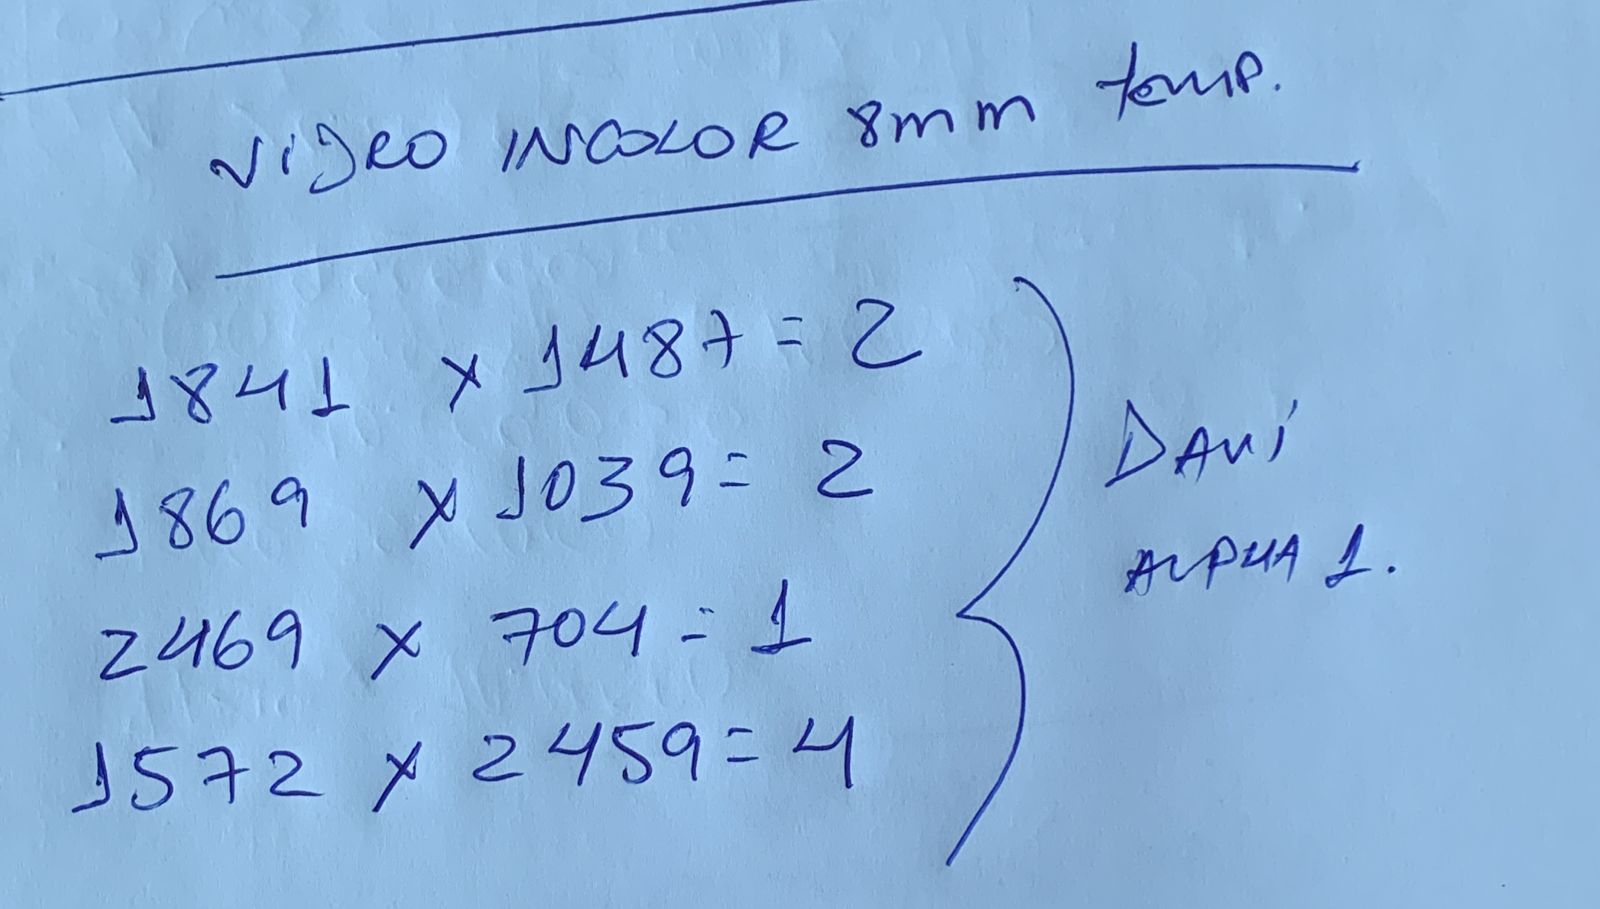 VIDRO INCOLOR 8mm temp.
1841 x 1487 = 2
1869 x 1039 = 2
2469 x 704 = 1
1572 x 2459 = 4
DAVI
ALPHA 1.